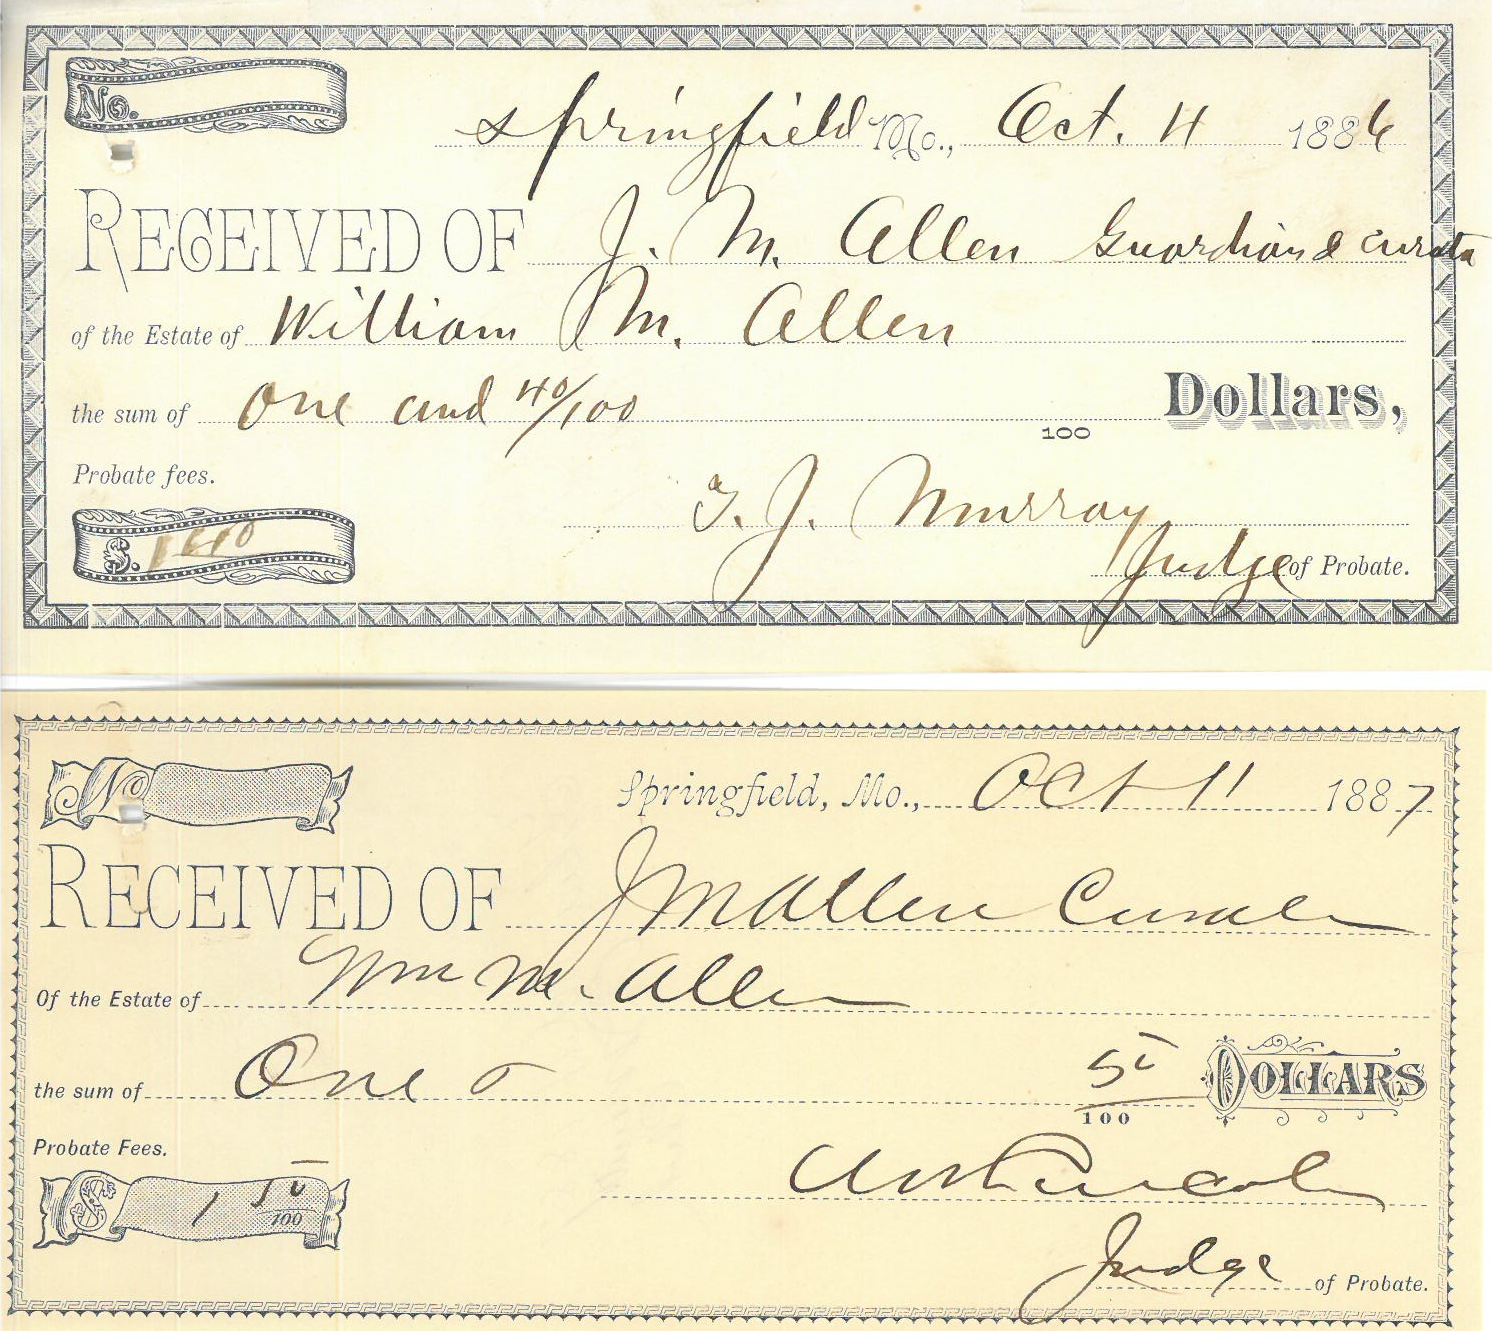 No.
Springfield Mo., Oct. 4 1886
RECEIVED OF J. M. Allen Guardian & curato
of the Estate of William M. Allen
the sum of One and 40/100 100 Dollars,
Probate fees.
T. J. Murray
$. 1 40
Judge of Probate.
No
Springfield, Mo., Oct 11 1887
RECEIVED OF J M Allen
Of the Estate of Wm M. Allen
the sum of One 50/100 DOLLARS
Probate Fees.
$ 1 50/100
Judge of Probate.